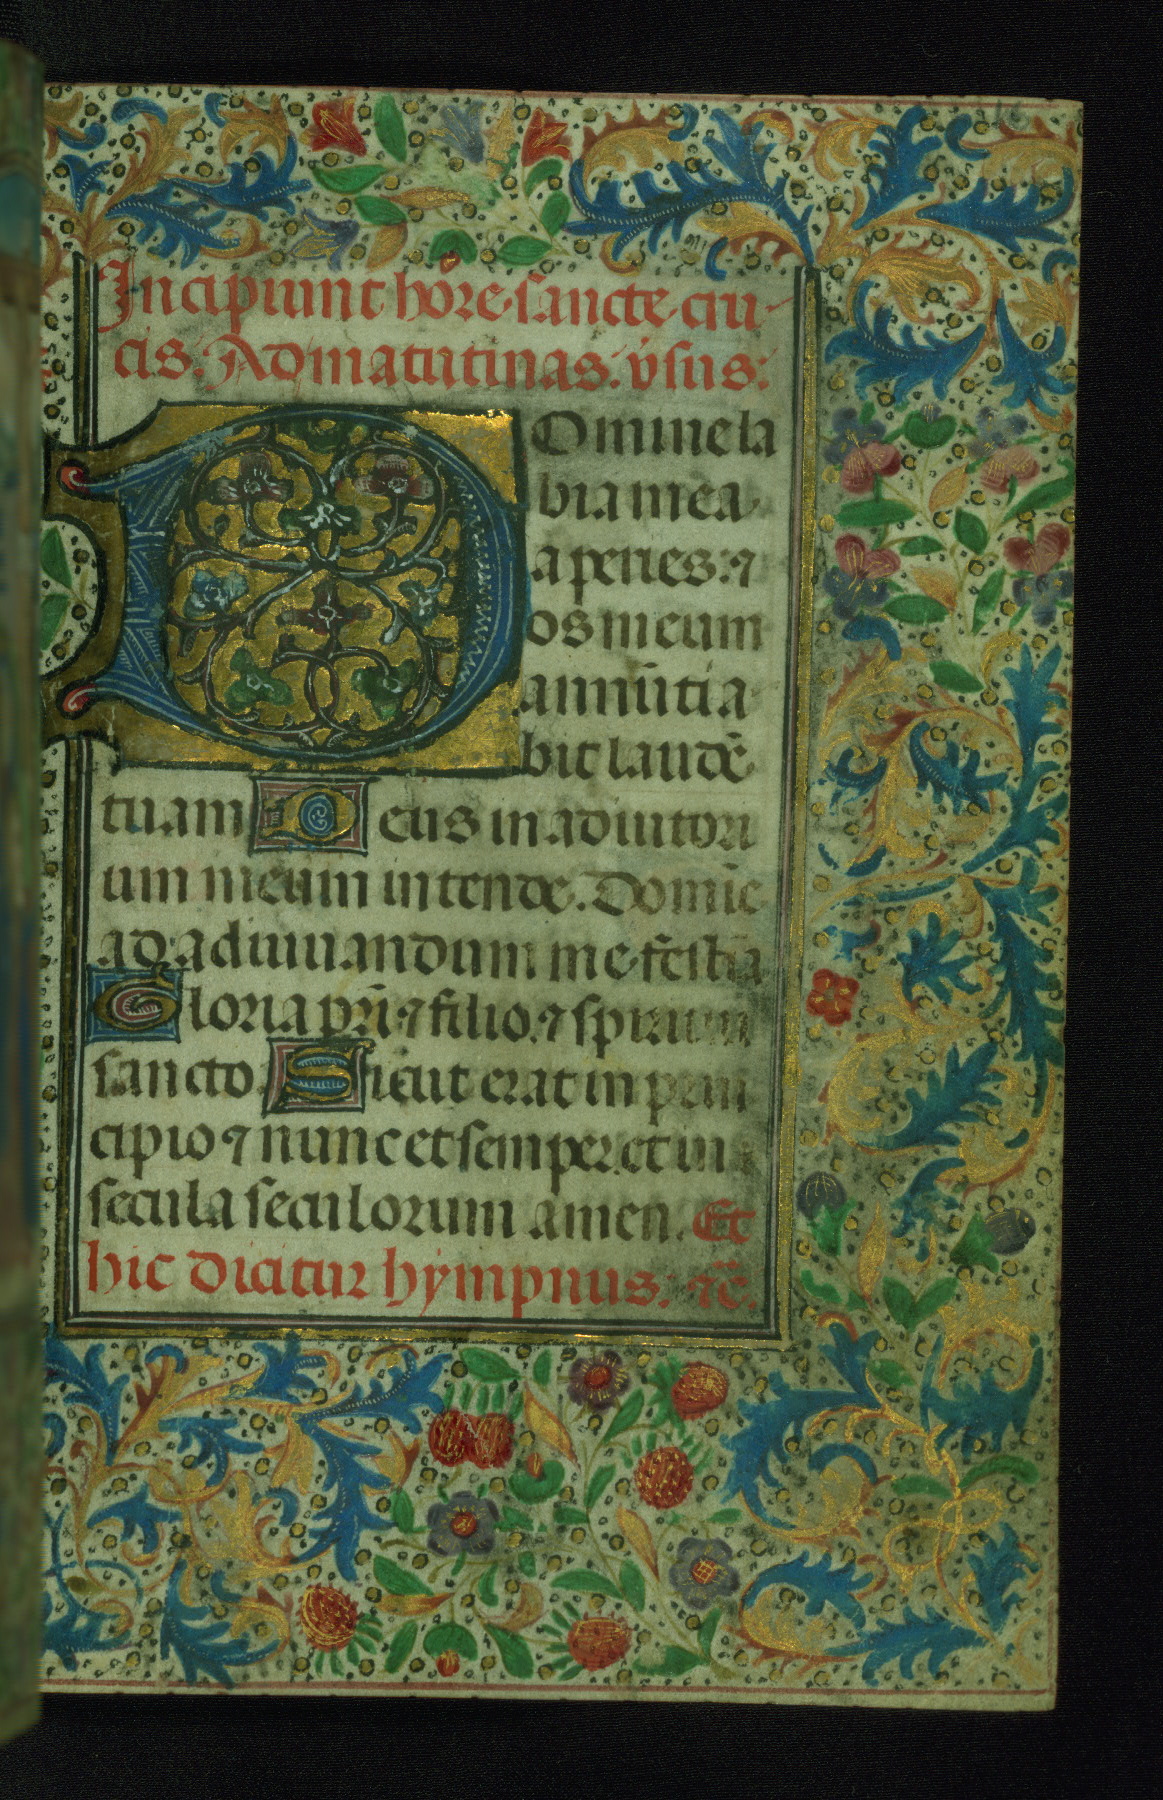 Incipiunt hore sancte cru-
cis: Ad matutinas: v̇sus:
Domine la
bia mea
aperies: ⁊
os meum
annūtia
bit laudē
tuam Deus in adiutori
um meum intende. Domīe
ad adiuuandum me festīa
Gloria pr̄i ⁊ filio. ⁊ spiritui
sancto Sicut erat in prin
cipio ⁊ nunc et semper. et in
secula seculorum amen. Et
hic dicitur hympnus: ⁊c̄.